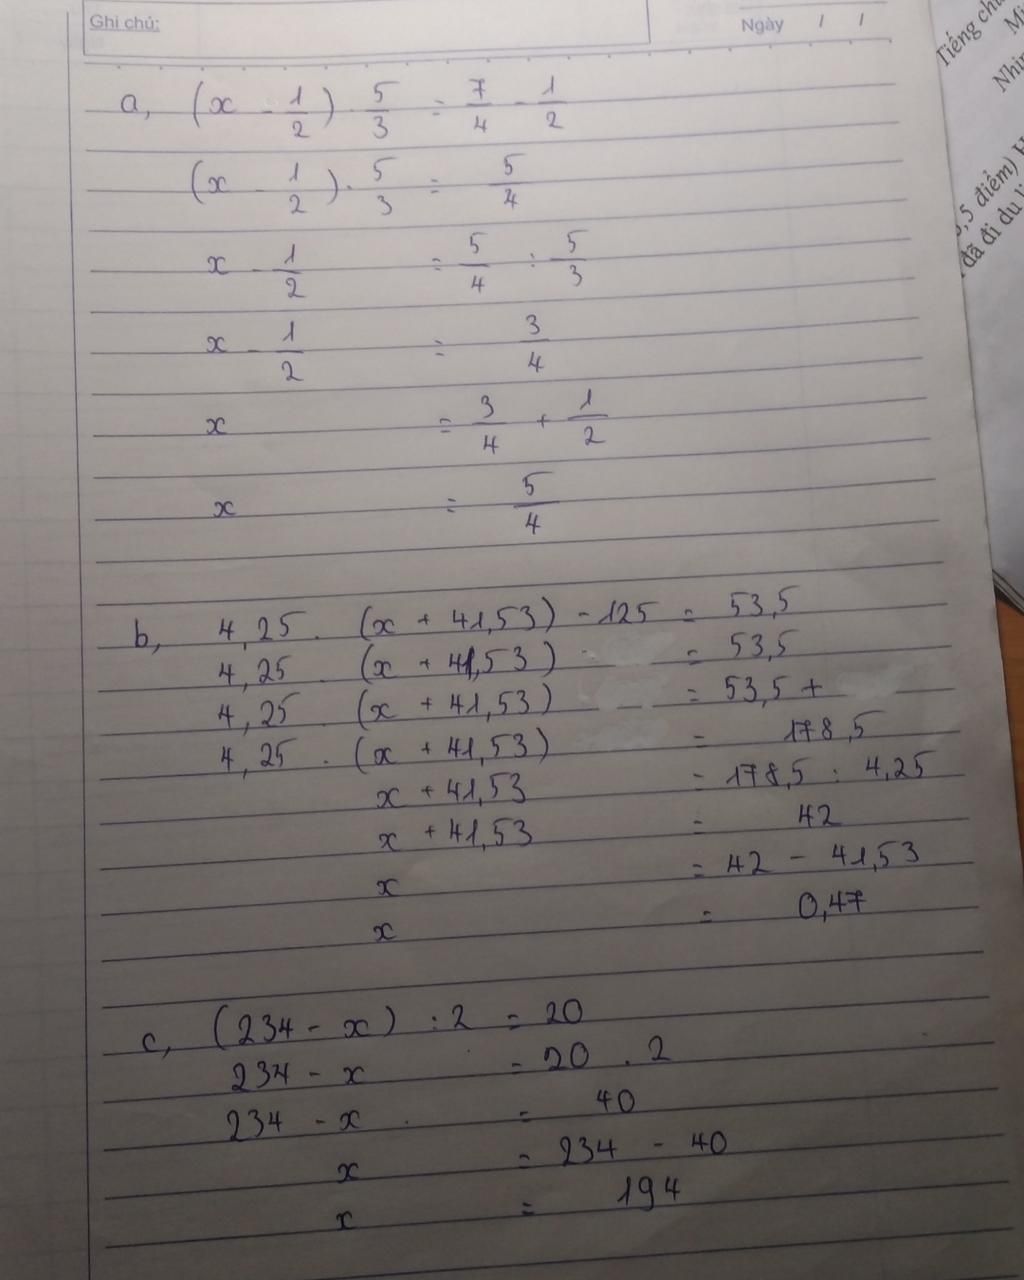 Ghi chú:
Ngày / /
a, (x - 1/2) . 5/3 = 7/4 - 1/2
(x - 1/2) . 5/3 = 5/4
x - 1/2 = 5/4 : 5/3
x - 1/2 = 3/4
x = 3/4 + 1/2
x = 5/4
b, 4,25 . (x + 41,53) - 125 = 53,5
4,25 . (x + 41,53) = 53,5
4,25 . (x + 41,53) = 53,5 +
4,25 . (x + 41,53) = 178,5
x + 41,53 = 178,5 : 4,25
x + 41,53 = 42
x = 42 - 41,53
x = 0,47
c, (234 - x) : 2 = 20
234 - x = 20 . 2
234 - x = 40
x = 234 - 40
x = 194
Tiếng
,5 điểm)
đã đi du